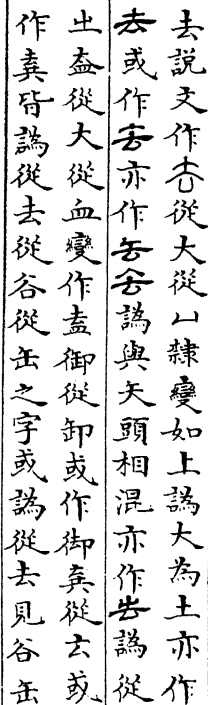 去說文作厺從大從凵隸變如上譌大為土亦作
去或作亦作譌與矢頭相混亦作譌從
㞢盇從大從血變作盍御從卸或作御從或
作皆譌從去從谷從缶之字或譌從去見谷缶